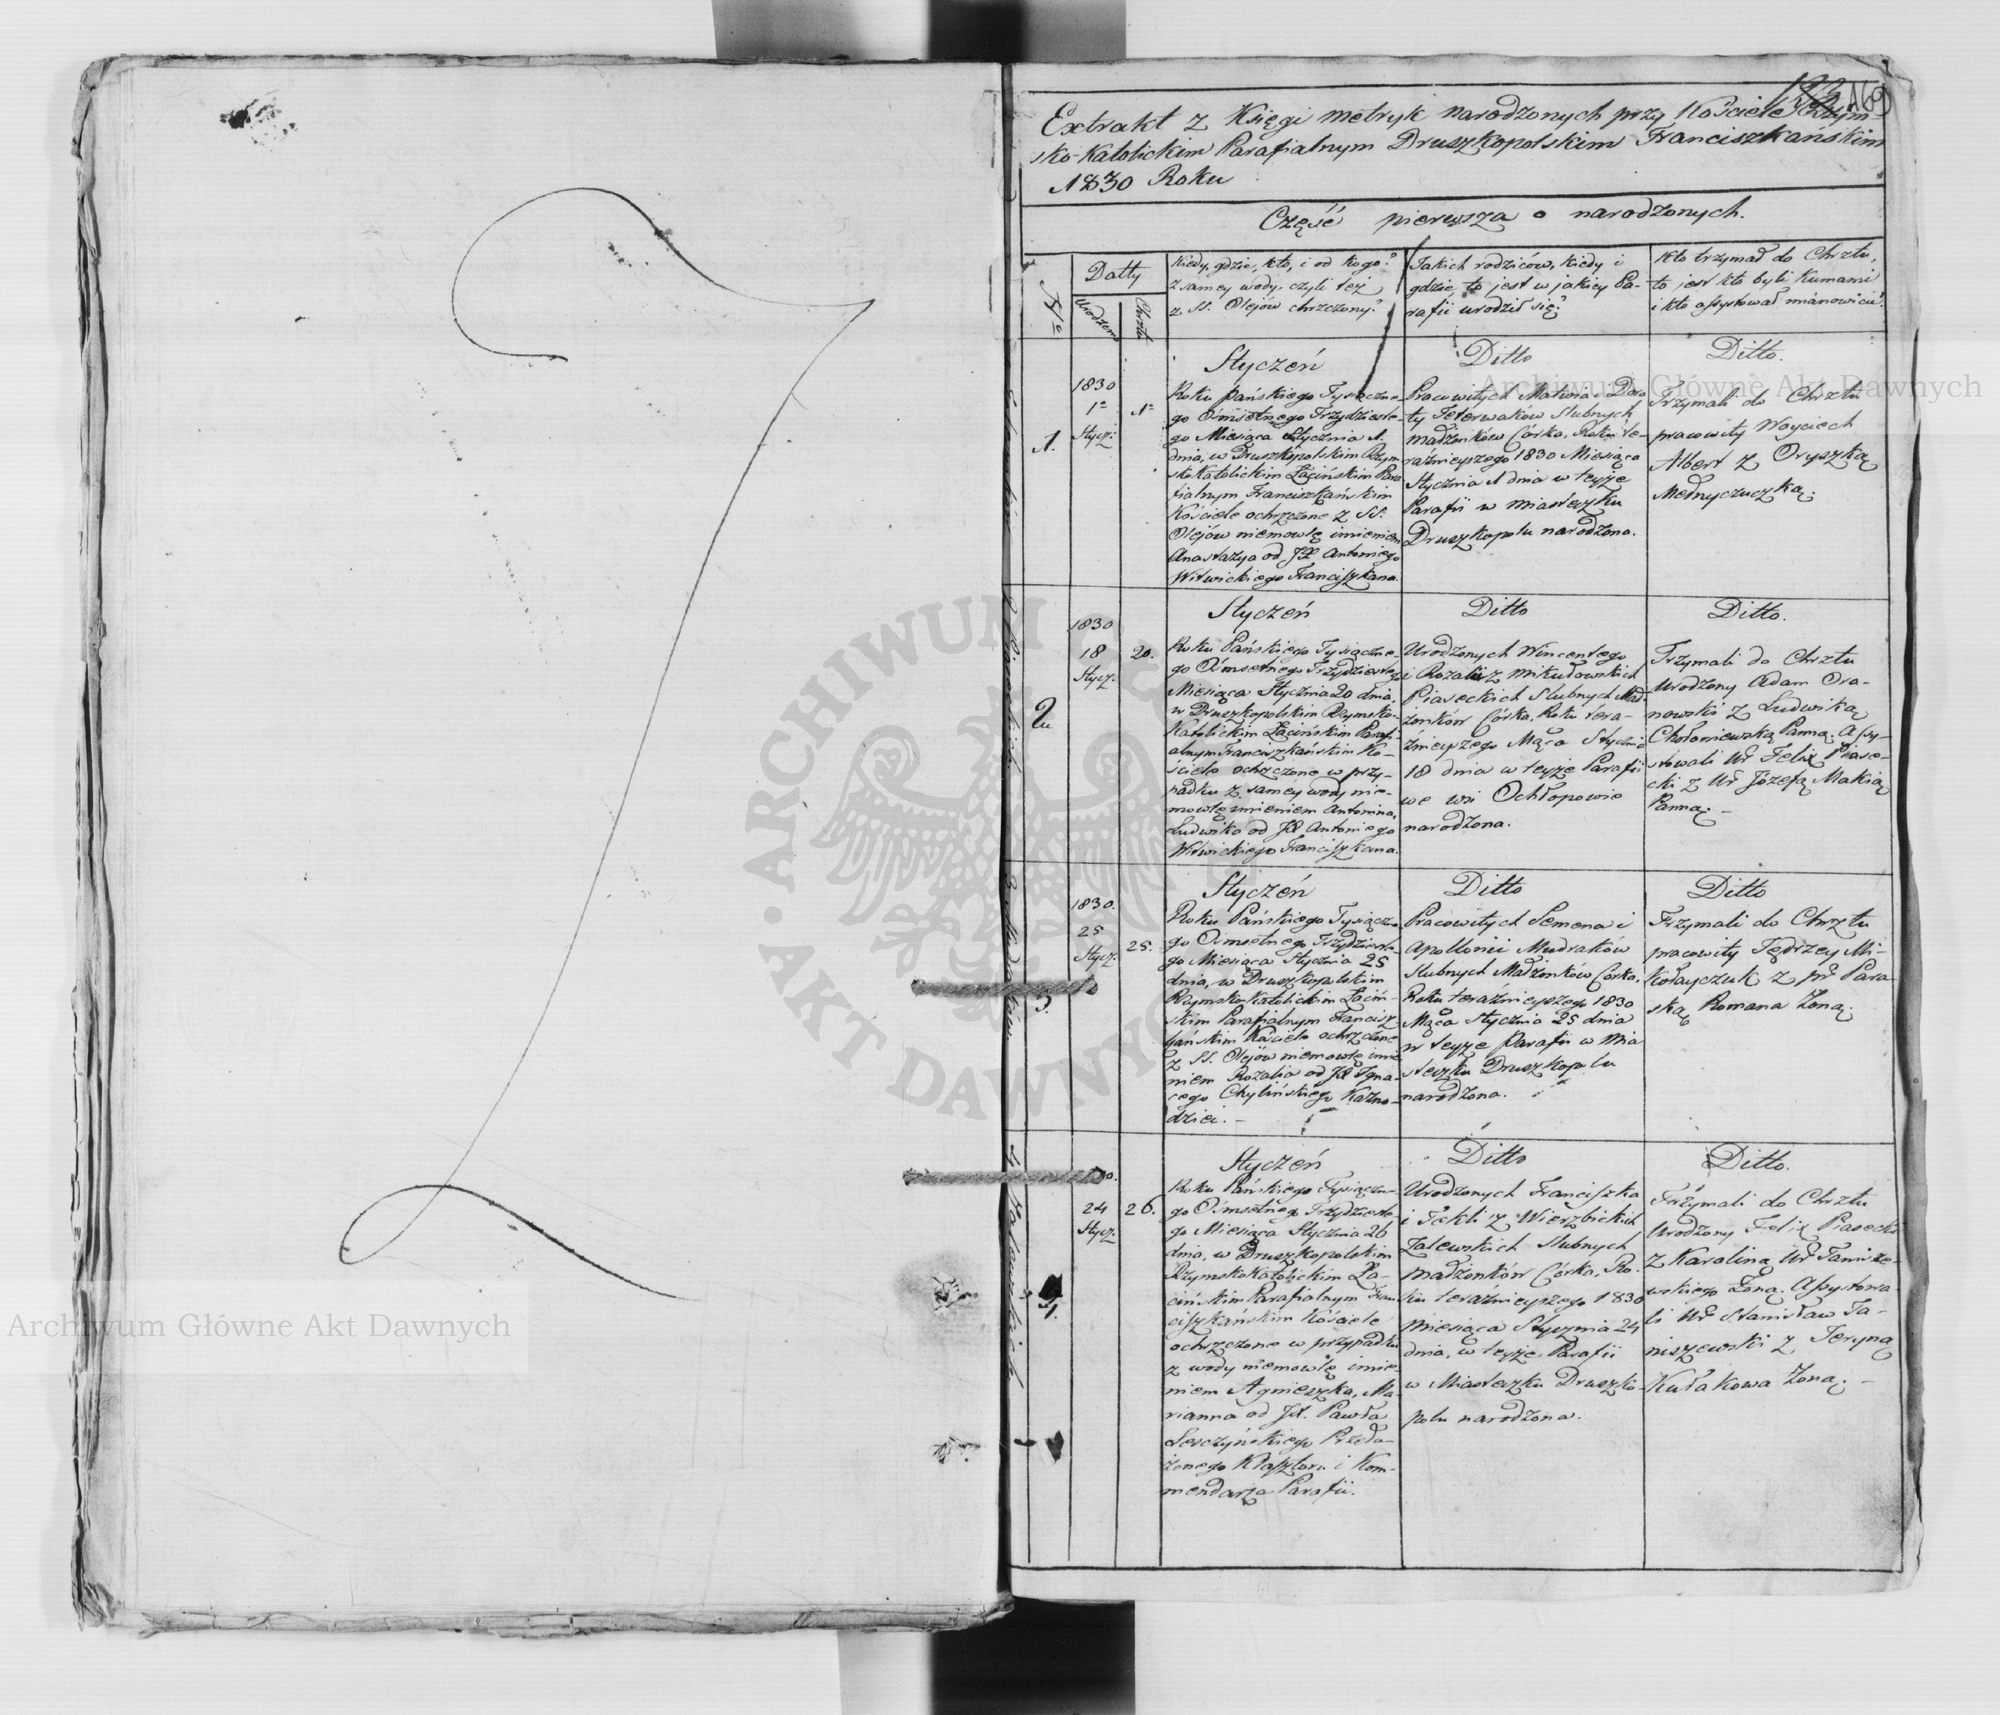 169
Extrakt z Księgi metryk narodzonych przy Kościele Rzym-
sko-Katolickim Parafialnym Druszkopolskim Franciszkańskim
1830 Roku
Część pierwsza o narodzonych.
Nro
Datty
Urodzen
Chrztu
Kiedy, gdzie, kto, i od kogo?
z samey wody, czyli też
z SS. Olejów chrzczony?
Jakich rodziców, kiedy i
gdzie, to jest w jakiey Pa-
rafii urodził się?
Kto trzymał do Chrztu,
to jest kto byli Kumami
i kto assystował mianowicie?
1.
1830
1o
Stycz:
1o
Styczeń
Roku Pańskiego Tysiączne-
go Ośmsetnego Trzydzieste-
go Miesiąca Stycznia 1.
dnia, w Druszkopolskim Rzym
sko Katolickim Łacińskim Para
fialnym Franciszkańskim
Kościele ochrzczone z SS.
Olejów niemowlę imieniem
Anastazya od JX Antoniego
Witwickiego Franciszkana.
Ditto
Pracowitych Matwia i Doro
ty Teterwaków Slubnych
małżonków Córka, Roku te-
raźnieyszego 1830 Miesiąca
Stycznia 1 dnia w teyże
Parafii w miasteczku
Druszkopolu narodzona.
Ditto.
Trzymali do Chrztu
pracowity Woyciech
Albert z Oryszką
Mełnyczuczką.
2
1830
18
Stycz.
20.
Styczeń
Roku Pańskiego Tysiączne-
go Ośmsetnego Trzydziesteg
Miesiąca Stycznia 20 dnia,
w Druszkopolskim Rzymsko-
Katolickim Łacińskim Parafi-
alnym Franciszkańskim Ko-
ściele ochrzczone w przy-
padku z samey wody nie-
mowlę imieniem Antonina,
Ludwika od JX Antoniego
Witwickiego Franciszkana.
Ditto
Urodzonych Wincentego
i Rozalii z Mikułowskich
Piaseckich Slubnych Mał-
żonków Córka, Roku tera-
źnieyszego Mąca Stycznia
18 dnia w teyże Parafii
we wsi Ochłopowie
narodzona.
Ditto.
Trzymali do Chrztu
Urodzony Adam Ora-
nowski z Ludwiką
Chołoniewską Panną. Assy-
stowali Ur Felix Piase-
cki z Ur Józefą Makią
Panną. -
3.
1830.
25
Stycz.
25.
Styczeń
Roku Pańskiego Tysiączne
go Ośmsetnego Trzydzieste-
go Miesiąca Stycznia 25
dnia, w Druszkopolskim
Rzymsko Katolickim Łaciń-
skim Parafialnym Francisz
kańskim Kościele ochrzczone
z SS. Olejów niemowlę imie
niem Rozalia od JX Igna-
cego Chylińskiego Kazno-
dziei. -
Ditto
Pracowitych Semena i
Apollonii Mudraków
Slubnych Małżonków Córka,
Roku teraźnieyszego 1830
Mąca Stycznia 25 dnia
w teyże Parafii w Mia
steczku Druszkopolu
narodzona.
Ditto
Trzymali do Chrztu
pracowity Jędrzey Mi-
kołayczuk z pr Para
ską Romana Żoną.
4.
24
Stycz.
26.
Styczeń
Roku Pańskiego Tysiączne-
go Ośmsetnego Trzydzieste
go Miesiąca Stycznia 26
dnia, w Druszkopolskim
Rzymsko Katolickim Ła-
cińskim Parafialnym Fran
ciszkanskim Kościele
ochrzczone w przypadku
z wody niemowlę imie-
niem Agnieszka, Ma-
rianna od JX. Pawła
Serczyńskiego Przeło-
żonego Klasztoru i Kom-
mendarza Parafii.
Ditto
Urodzonych Franciszka
i Tekli z Wierzbickich
Zalewskich Slubnych
małżonków Córka, Ro-
ku teraźnieyszego 1830
Miesiąca Stycznia 24
dnia, w teyże Parafii
w Miasteczku Druszko-
polu narodzona.
Ditto.
Trzymali do Chrztu
Urodzony Felix Piasecki
z Karoliną Ur Tanisze-
wskiego Żoną. Assystowa
li Ur Stanisław Ta-
niszewski z Teryną
Kułakowa Żoną. -
Archiwum Główne Akt Dawnych
Archiwum Główne Akt Dawnych
ARCHIWUM
AKT DAWNYCH